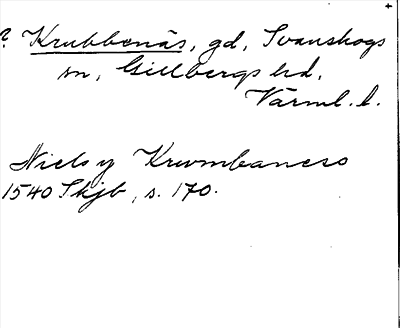 ? Krubbenäs, gd, Svanskogs
sn, Gillbergs hd,
Värml. l.
Niels y Krwmbaness
1540 Skjb, s. 170.